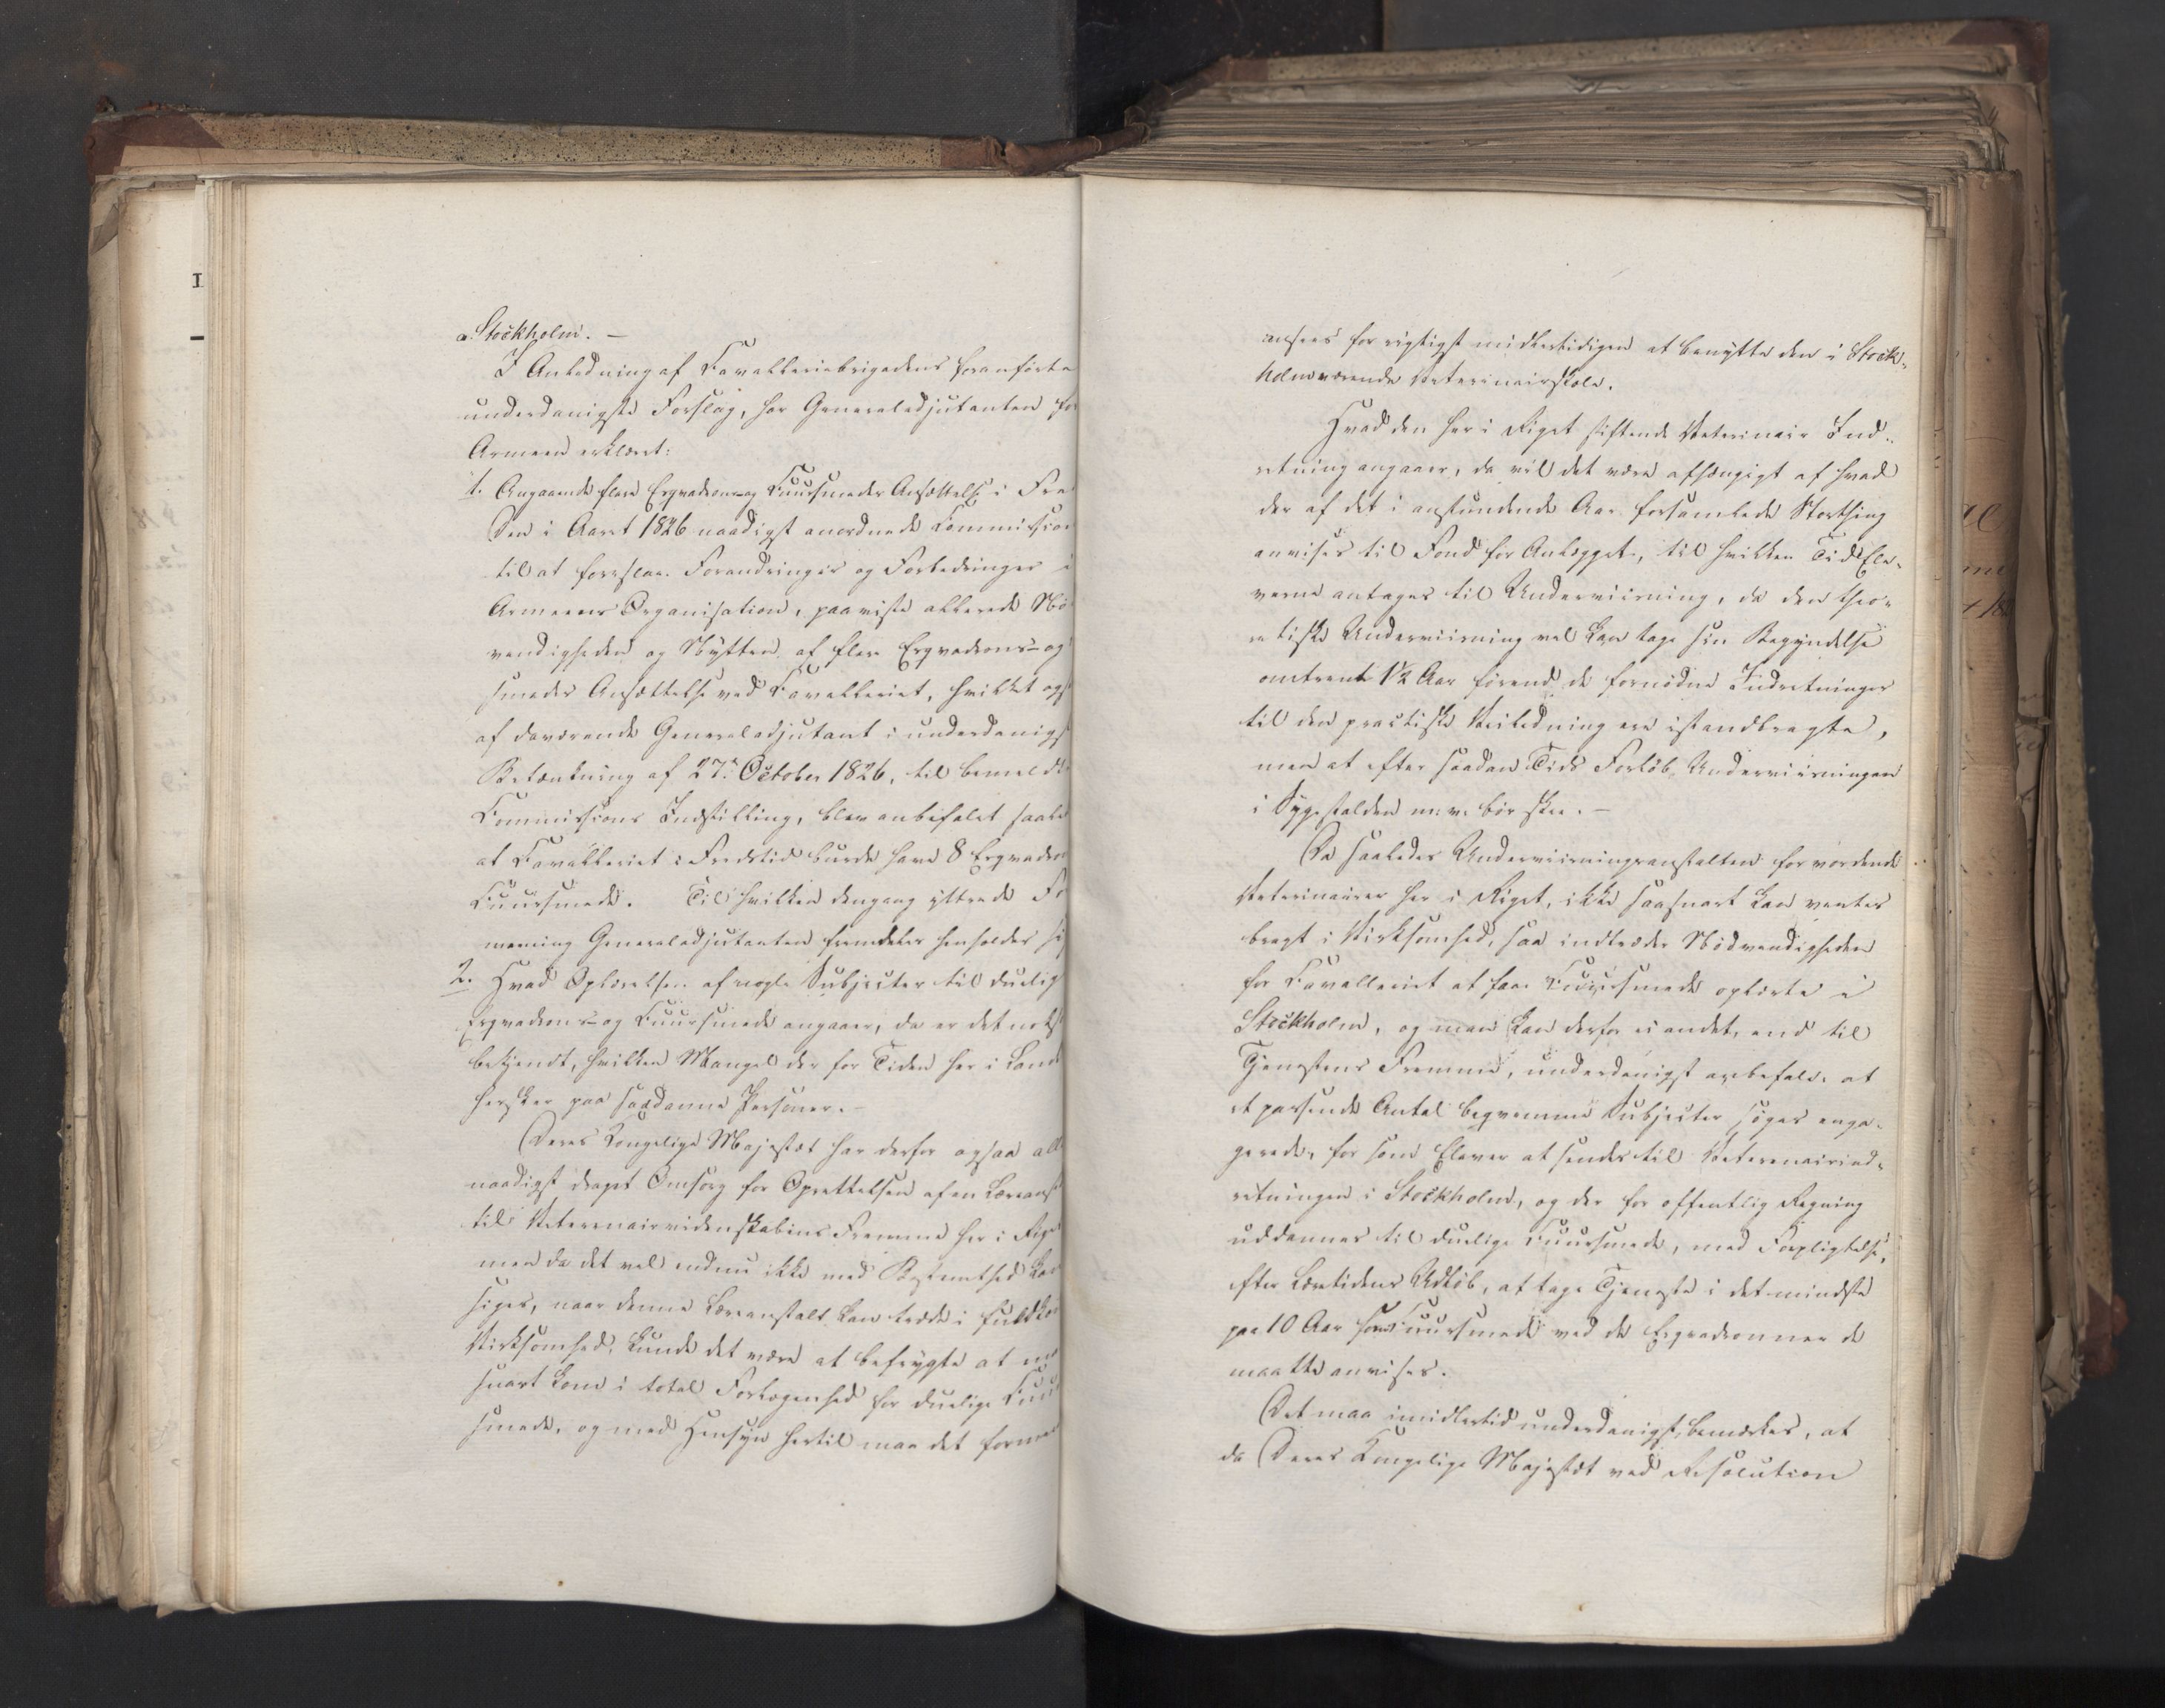 a. Stockholm. —
I Anledning af Cavalleriebrigadens foranførte
underdanigste Forslag, har Generaladjutanten for
Armeen erklæret:
1. Angaaende flere Esqvadrons- og Cuursmedes Ansættelse i Fre
Den i Aaret 1826 naadigst anordnede Commission
til at foreslaae Forandringer og Forbedringer i
Armeens Organisation, paaviste allerede Nød
vendigheden og Nytten af flere Esqvadrons- og
smedes Ansættelse ved Cavalleriet, hvilket ogs
af daværende Generaladjutant i underdanigst
Betænkning af 27de October 1826, til bemeldte
Commissions Indstilling, blev anbefalet saale
at Cavalleriet i Fredstid burde have 8 Esqvadron
Cuursmede. Til hvilken dengang yttrede For
mening Generaladjutanten fremdeles henholder si
2. Hvad Oplærelsen af nogle Subjecter til duelig
Esqvadrons- og Cuursmede angaaer, da er det noks
bekjendt, hvilken Mangel der for Tiden her i Land
hersker paa saadanne Personer. —
Deres Kongelige Majestæt har derfor ogsaa all
naadigst draget Omsorg for Oprettelsen af en Læreanst
til Veterinairvidenskabens Fremme her i Riget
men da det vel endnu ikke med Bestemthed kan
siges, naar denne Læreanstalt kan træde i fuldkom
Virksomhed, kunde det være at befrygte at m
snart kom i total Forlegenhed for duelige Cuur
smede, og med Hensyn hertil maa det formee
ansees for rigtigst midlertidigen at benytte den i Stock-
holm værende Veterinairskole.
Hvad den her i Riget stiftende Veterinair Ind-
retning angaaer, da vil det være afhængigt af hvad
der af det i anstundende Aar forsamlede Storthing
anvises til Fond for Anlægget, til hvilken Tid Ele-
verne antages til Underviisning, da den theo-
retiske Underviisning vel kan tage sin Begyndelse
omtrent 1½ Aar førend de fornødne Indretninger
til den practiske Veiledning ere istandbragte,
men at efter saadan Tids Forløb Underviisningen
i Sygestalden m: v. bør skee. —
Da saaledes Underviisningsanstalten for vordende
Veterinairer her i Riget, ikke saasnart kan ventes
bragt i Virksomhed, saa indtræder Nødvendigheden
for Cavalleriet at faae Cuursmede oplærte i
Stockholm, og man kan derfor ei andet, end til
Tjenestens Fremme, underdanigst anbefale, at
et passende Antal beqvemme Subjecter søges enga-
gerede, for som Elever at sendes til Veterinairind-
retningen i Stockholm, og der for offentlig Regning
uddannes til duelige Cuursmede, med Forpligtelse,
efter Læretidens Udløb, at tage Tjeneste i det mindste
paa 10 Aar som Cuursmede ved de Esqvadronner de
maatte anvises.
Det maa imidlertid underdanigst bemærkes, at
da Deres Kongelige Majestæt ved Resolution